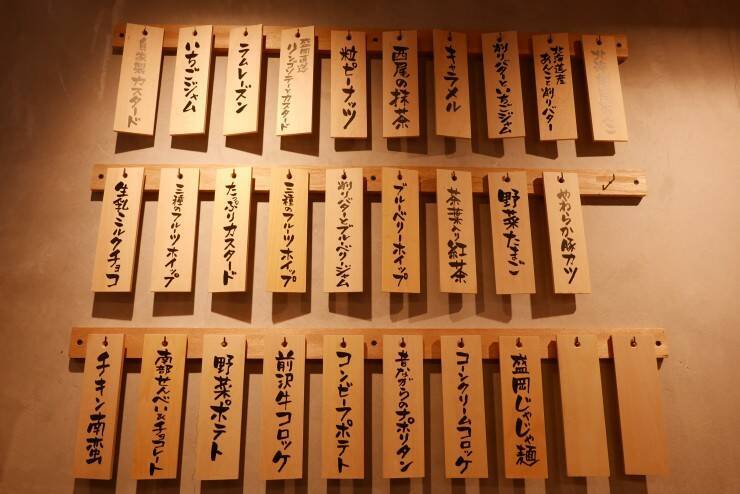 北海道産
あんこと削りバター
削りバターといちごジャム
キャラメル
西尾の抹茶
粒ピーナッツ
盛岡直送
リンゴソテーとカスタード
ラムレーズン
いちごジャム
自家製カスタード
やわらか豚カツ
野菜たまご
茶葉入り紅茶
ブルーベリーホイップ
削りバターとブルーベリージャム
三種のフルーツホイップ
たっぷりカスタード
三種のフルーツホイップ
生乳ミルクチョコ
盛岡じゃじゃ麺
コーンクリームコロッケ
昔ながらのナポリタン
コンビーフポテト
前沢牛コロッケ
野菜ポテト
南部せんべい&チョコレート
チキン南蛮